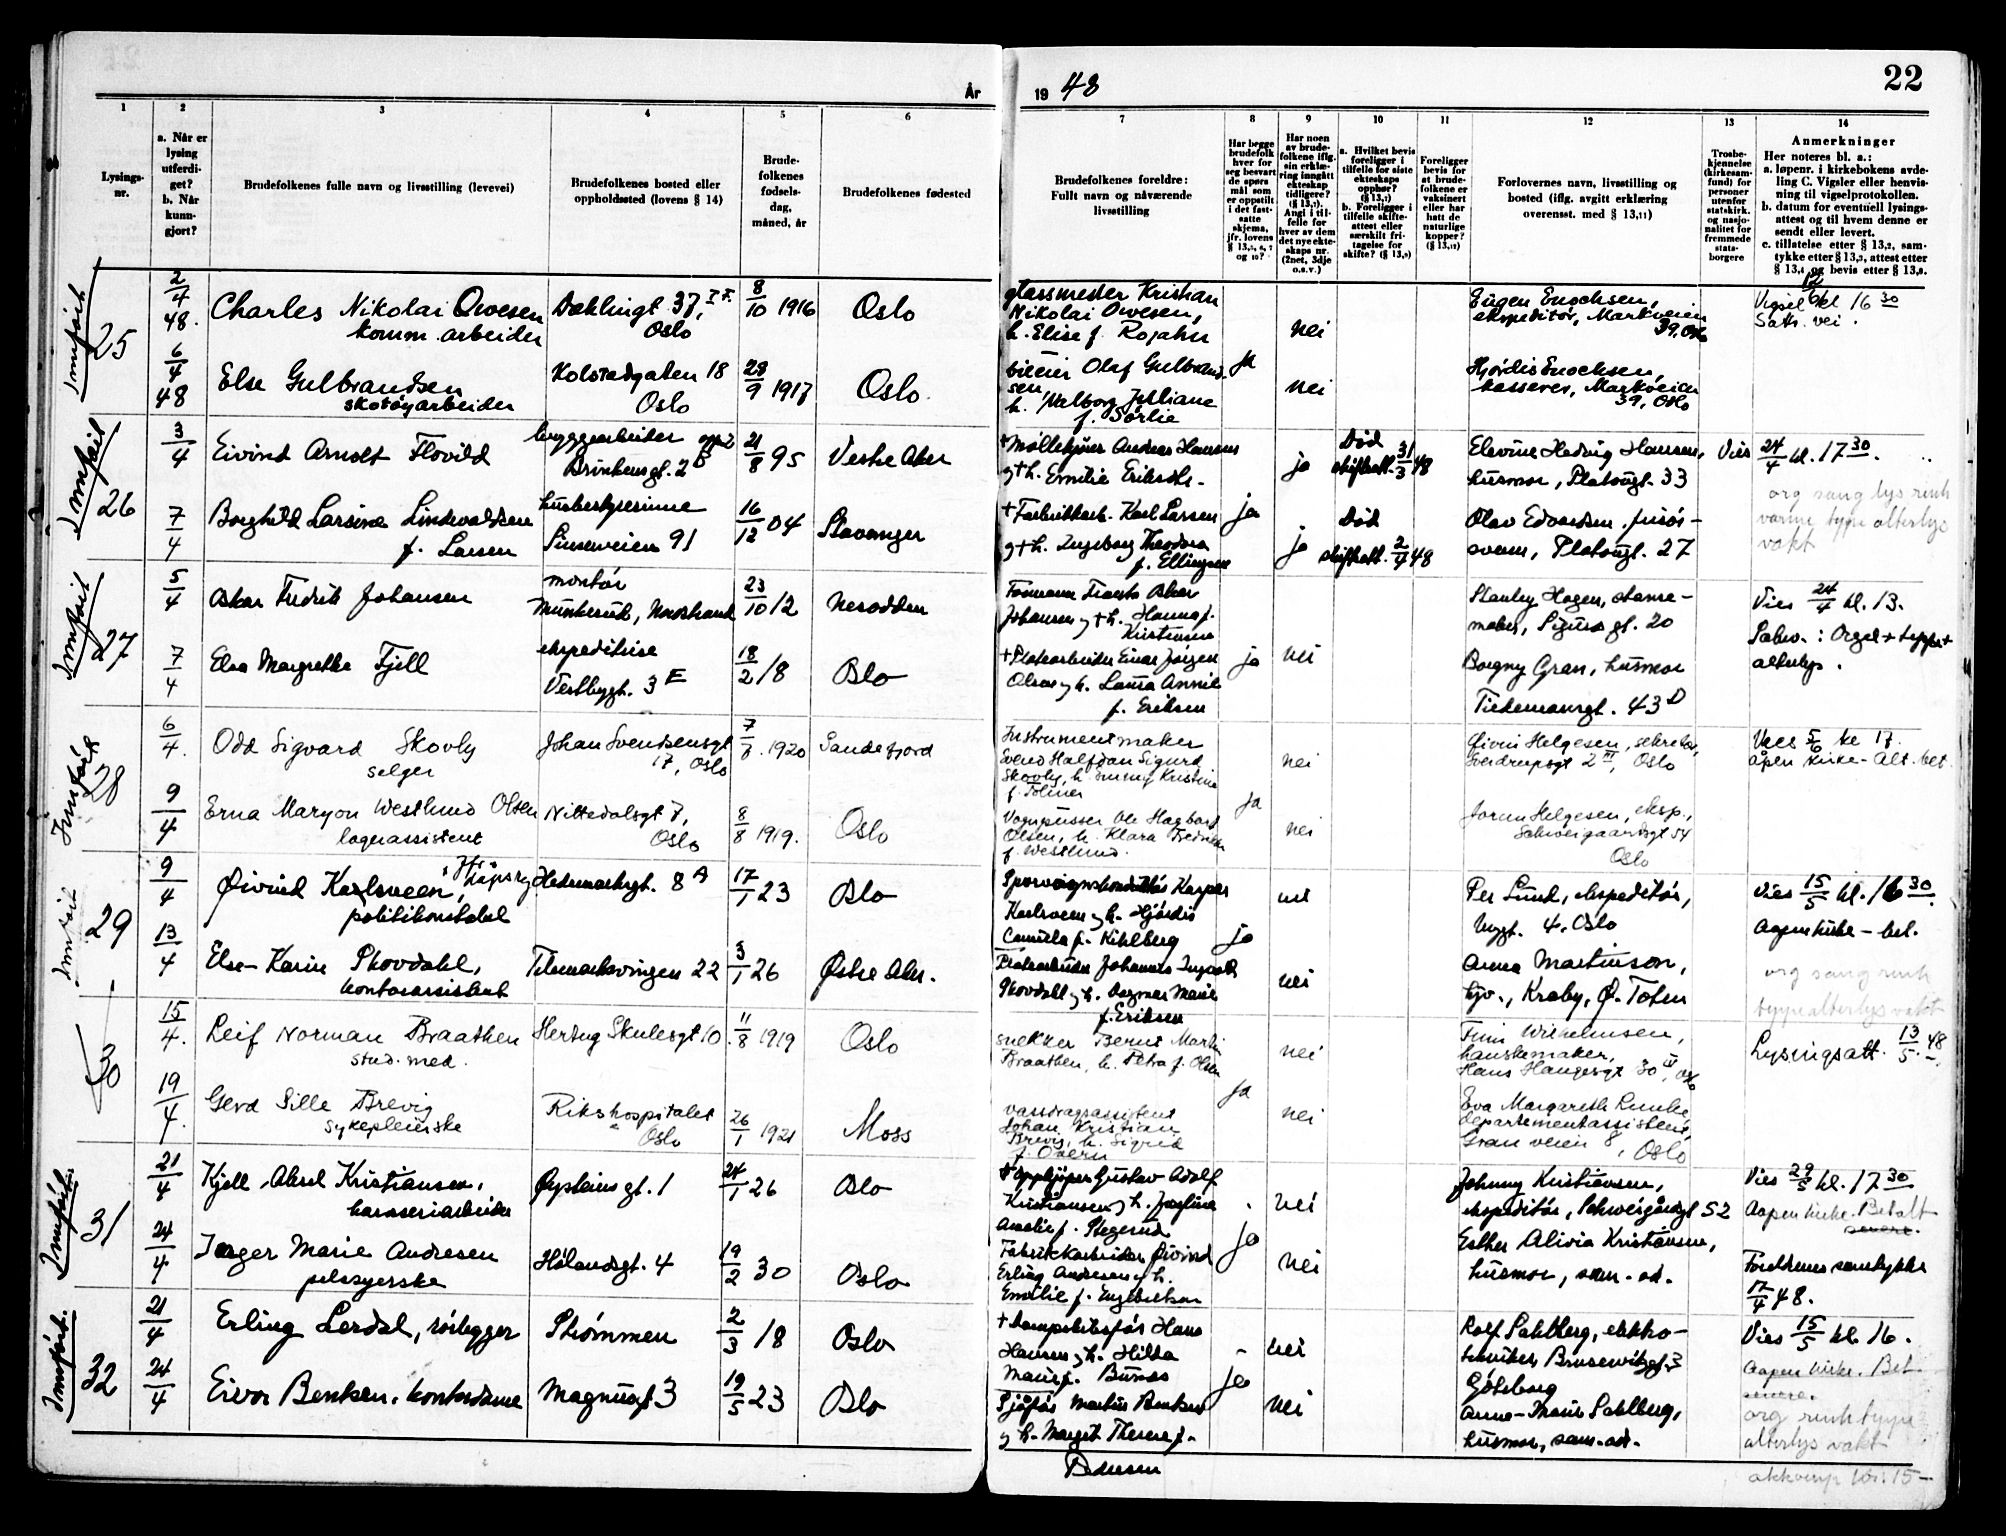 År
19 48
22
1
Lysings-
nr.
2
a. Når er
lysing
utferdi-
get?
b. Når
kunn-
gjort?
3
Brudefolkenes fulle navn og livsstilling (levevei)
4
Brudefolkenes bosted eller
oppholdssted (lovens § 14)
5
Brude-
folkenes
fødsels-
dag,
måned, år
6
Brudefolkenes fødested
7
Brudefolkenes foreldre:
Fullt navn og nåværende
livsstilling
8
Har begge
brudefolk
hver for
seg besvart
de spørs
mål som
er oppstilt
i det fast-
satte
skjema,
jfr. lovens
9
Har noen
av brude-
folkene iflg.
sin erklæ-
ring inngått
ekteskap
tidligere?
Angi i til-
felle for
hver av dem
det nye ekte-
skaps nr.
(2net, 3dje
o.s.v.)
10
a. Hvilket bevis
foreligger i
tilfelle for siste
ekteskaps
opphør?
b. Foreligger i
tilfelle skifte-
attest eller
særskilt fri-
tagelse for
skifte?
11
Foreligger
bevis for
at brude-
folkene er
vaksinert
eller har
hatt de
naturlige
kopper?
12
Forlovernes navn, livsstilling og
bosted (iflg. avgitt erklæring
overensst. med § 13,11)
13
Trosbe-
kjennelse
(kirkesam-
fund) for
personer
utenfor
statskirk.
og nasjo-
nalitet for
fremmede
stats-
borgere
14
Anmerkninger
Her noteres bl. a.:
a. løpenr. i kirkebokens avde-
ling C. Vigsler eller henvis-
ning til vigselprotokollen.
b. datum for eventuell lysings-
attest og til hvem denne er
sendt eller levert.
c. tillatelse etter § 13,2, sam-
tykke etter § 13,3, attest etter
§ 13,4 og bevis etter § 13,8.
25
2/4 48.
Charles Nikolai Owesen
komm. arbeider
Dælingt 37,
Oslo
8/10 1916
Oslo
glassmester Kristian
Nikolai Owesen,
h. Elise f. Rojahn
nei
Eugen Enochsen,
ekspeditør, Markveien
39, Oslo
Vigsel 12/6 kl 16 30
6/4 48
Else Gulbrandsen
skotøyarbeider
Kolstadgaten 18
Oslo
28/9 1917
Oslo.
Olaf Gulbrand-
sen,
h. Valborg Juliane
f. Sørlie
ja
nei
Hjørdis Enochsen,
kasserer, Markveien
39, Oslo
26
3/4
Eivind Arndt Flovild
byggearbeider
21/8 95
Vestre Aker
ja
Død
skifteatt. 31/3 48
Elevine Hedvig Hansen,
husmor, Platougt. 33
Vies 24/4 kl. 17 30.
7/4
Borghild Larsine Lindvaldsen
f. Larsen
husbestyrerinne
Sinsenveien 91
16/12 04
Stavanger
+ Fabrikkarb. Karl Larsen
og + h. Ingeborg Theodora
f. Ellingsen
ja
ja
Død
skifteatt. 2/4 48
Olav Edvardsen, frisør-
svenn, Platougt. 27
org sang lys rink
varme teppe alterlys
vakt
27
5/4
Oskar Fredrik Johansen
montør
23/10 12
Nesodden
Johansen og + h. Hanna f.
Kristiansen
Stanley Hagen,
Sigurds gt. 20
Vies 24/4 kl. 13.
7/4
Elsa Margrethe Fjell
ekspeditrise
Vestbygt. 3 E
18/2 18
Oslo
f. Eriksen
ja
nei
Borgny Gran, husmor
Tiedemansgt. 43 D
alterlys.
28
6/4.
Odd Sigvard Skovly
selger
Johan Svendsensgt
17, Oslo
1920
Sandefjord
Instrumentmaker
Svend Halfdan Sigurd
nei
Øivin Helgesen, sekretær,
Sverdrupsgt 2 III, Oslo
Vies 5/6 kl 17.
åpen kirke - Alt. bet.
9/4
Erna Maryon Westlund Olsen
lagerassistent
Nittedalsgt 7,
Oslo
8/8 1919.
Oslo
Vognpusser Ole Hagbart
Olsen, h. Klara Fredrikke
f. Westlund.
ja
nei
Jorun Helgesen, eksp.,
Schweigaardsgt 54
Oslo
29
9/4
Øivind Karlsveen,
politikonstabel
Hedemarksgt. 8 A
17/1 23
Oslo
Sporvognskonduktør Kasper
Karlsveen og h. Hjørdis
Camilla f. Kihlberg
nei
Per Lund, ekspeditør,
4, Oslo
Vies 15/5 kl. 16 30.
Aapen kirke - bet.
13/4
Else-Karin Skovdahl,
kontorassistent
Telemarksvingen 22
3/1 26
Østre Aker.
Platearbeider Johannes Ingvald
Skovdahl og h. Dagmar Marie
f. Eriksen
ja
nei
Anna Martinson,
hjv., Kraby, Ø. Toten
org sang rink
teppe alterlys vakt
30
15/4.
Leif Norman Braathen
stud. med.
Hertug Skulesgt 10.
11/8 1919
Oslo
snekker Bernt Martin
Braathen, h. Petra f. Olsen
nei
Finn Wilhelmsen,
hanskemaker,
Hans Haugesgt 30 IV, Oslo
Lysingsatt. 13/5 48
19/4.
Gerd Sille Brevig
sykepleierske
Rikshospitalet
Oslo
26/1 1921
Moss
vassdragsassistent
Johan Kristian
Brevig, h. Sigrid
ja
nei
Eva Margareth Lunke,
departementassistent,
Granveien 8, Oslo
31
21/4
Kjell Aksel Kristiansen,
karosseriarbeider
Øysteinsgt. 1
24/1 26
Oslo
Gustav Adolf
Kristiansen og h. Josefine
Amalie f. Stegerud
nei
Johnny Kristiansen,
ekspeditør, Schweigårdsgt 52
Vies 29/5 kl. 17 30
Aapen kirke. Betalt
24/4
Inger Marie Andresen
pelssyerske
Hølandsgt. 4
19/2 30
Oslo
Fabrikkarbeider Øivind
Erling Andresen og h.
Emilie f. Engebretsen
ja
nei
Esther Alivia Kristiansen,
husmor, sam. ad.
Foreldrenes samtykke
17/4 48.
32
21/4
Erling Lerdal, rørlegger
Strømmen
2/3 18
Oslo
Hansen og h. Hilda
Marie f.
nei
Rolf Sahlberg, elektro-
tekniker
Göteborg
Vies 15/5 kl. 16.
Aapen kirke. Bet
senere.
24/4
Eivor Bentsen, kontordame
Magnusgt 3
19/5 23
Oslo
Sjåfør Martin Bentsen
og h. Margit Therese f.
Pedersen
ja
nei
Anna-Maria Sahlberg,
husmor, sam. ad.
org rink teppe
alterlys vakt
akkomp kr. 15-